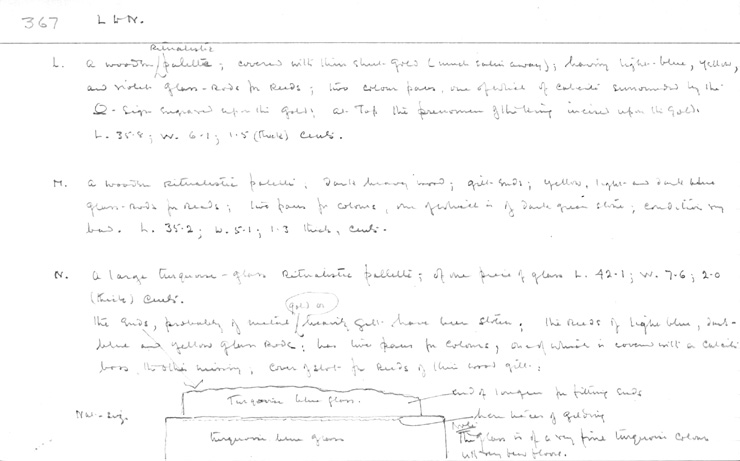 367 L to N.
Ritualistic
L. A wooden palette; covered with thin sheet-gold (much eaten away); having light-blue, yellow,
and violet glass-rods for Reeds; two colour pans, one of which of Calcite surrounded by the
Ω-Sign engraved upon the gold; at Top the prenomen of the king incised upon the Gold.
L. 35.8; W. 6.1; 1.5 (thick) Cents.
M. A wooden Ritualistic palette, dark heavy wood; gilt-ends; yellow, light-and dark blue
glass-Rods for Reeds; two pans for colours, one of which is of dark green stone; condition very
bad. L. 35.2; W. 5.1; 1.3 thick, Cents.
N. A large turquoise-glass Ritualistic pallette; of one piece of glass L. 42.1; W. 7.6; 2.0
(thick) Cents.
gold or
The Ends, probably of metal heavily Gilt have been stolen; The Reeds of light blue, dark-
blue and yellow glass Rods; has two pans for Colours, one of which is covered with a Calcite
boss, the other missing, Cover of slot for Reeds of thin wood gilt.
Turquoise blue glass. end of tongue for fitting Ends
here traces of gilding
turquoise blue glass
Note
The glass is of a very fine turquoise Colour
with very few flaws.